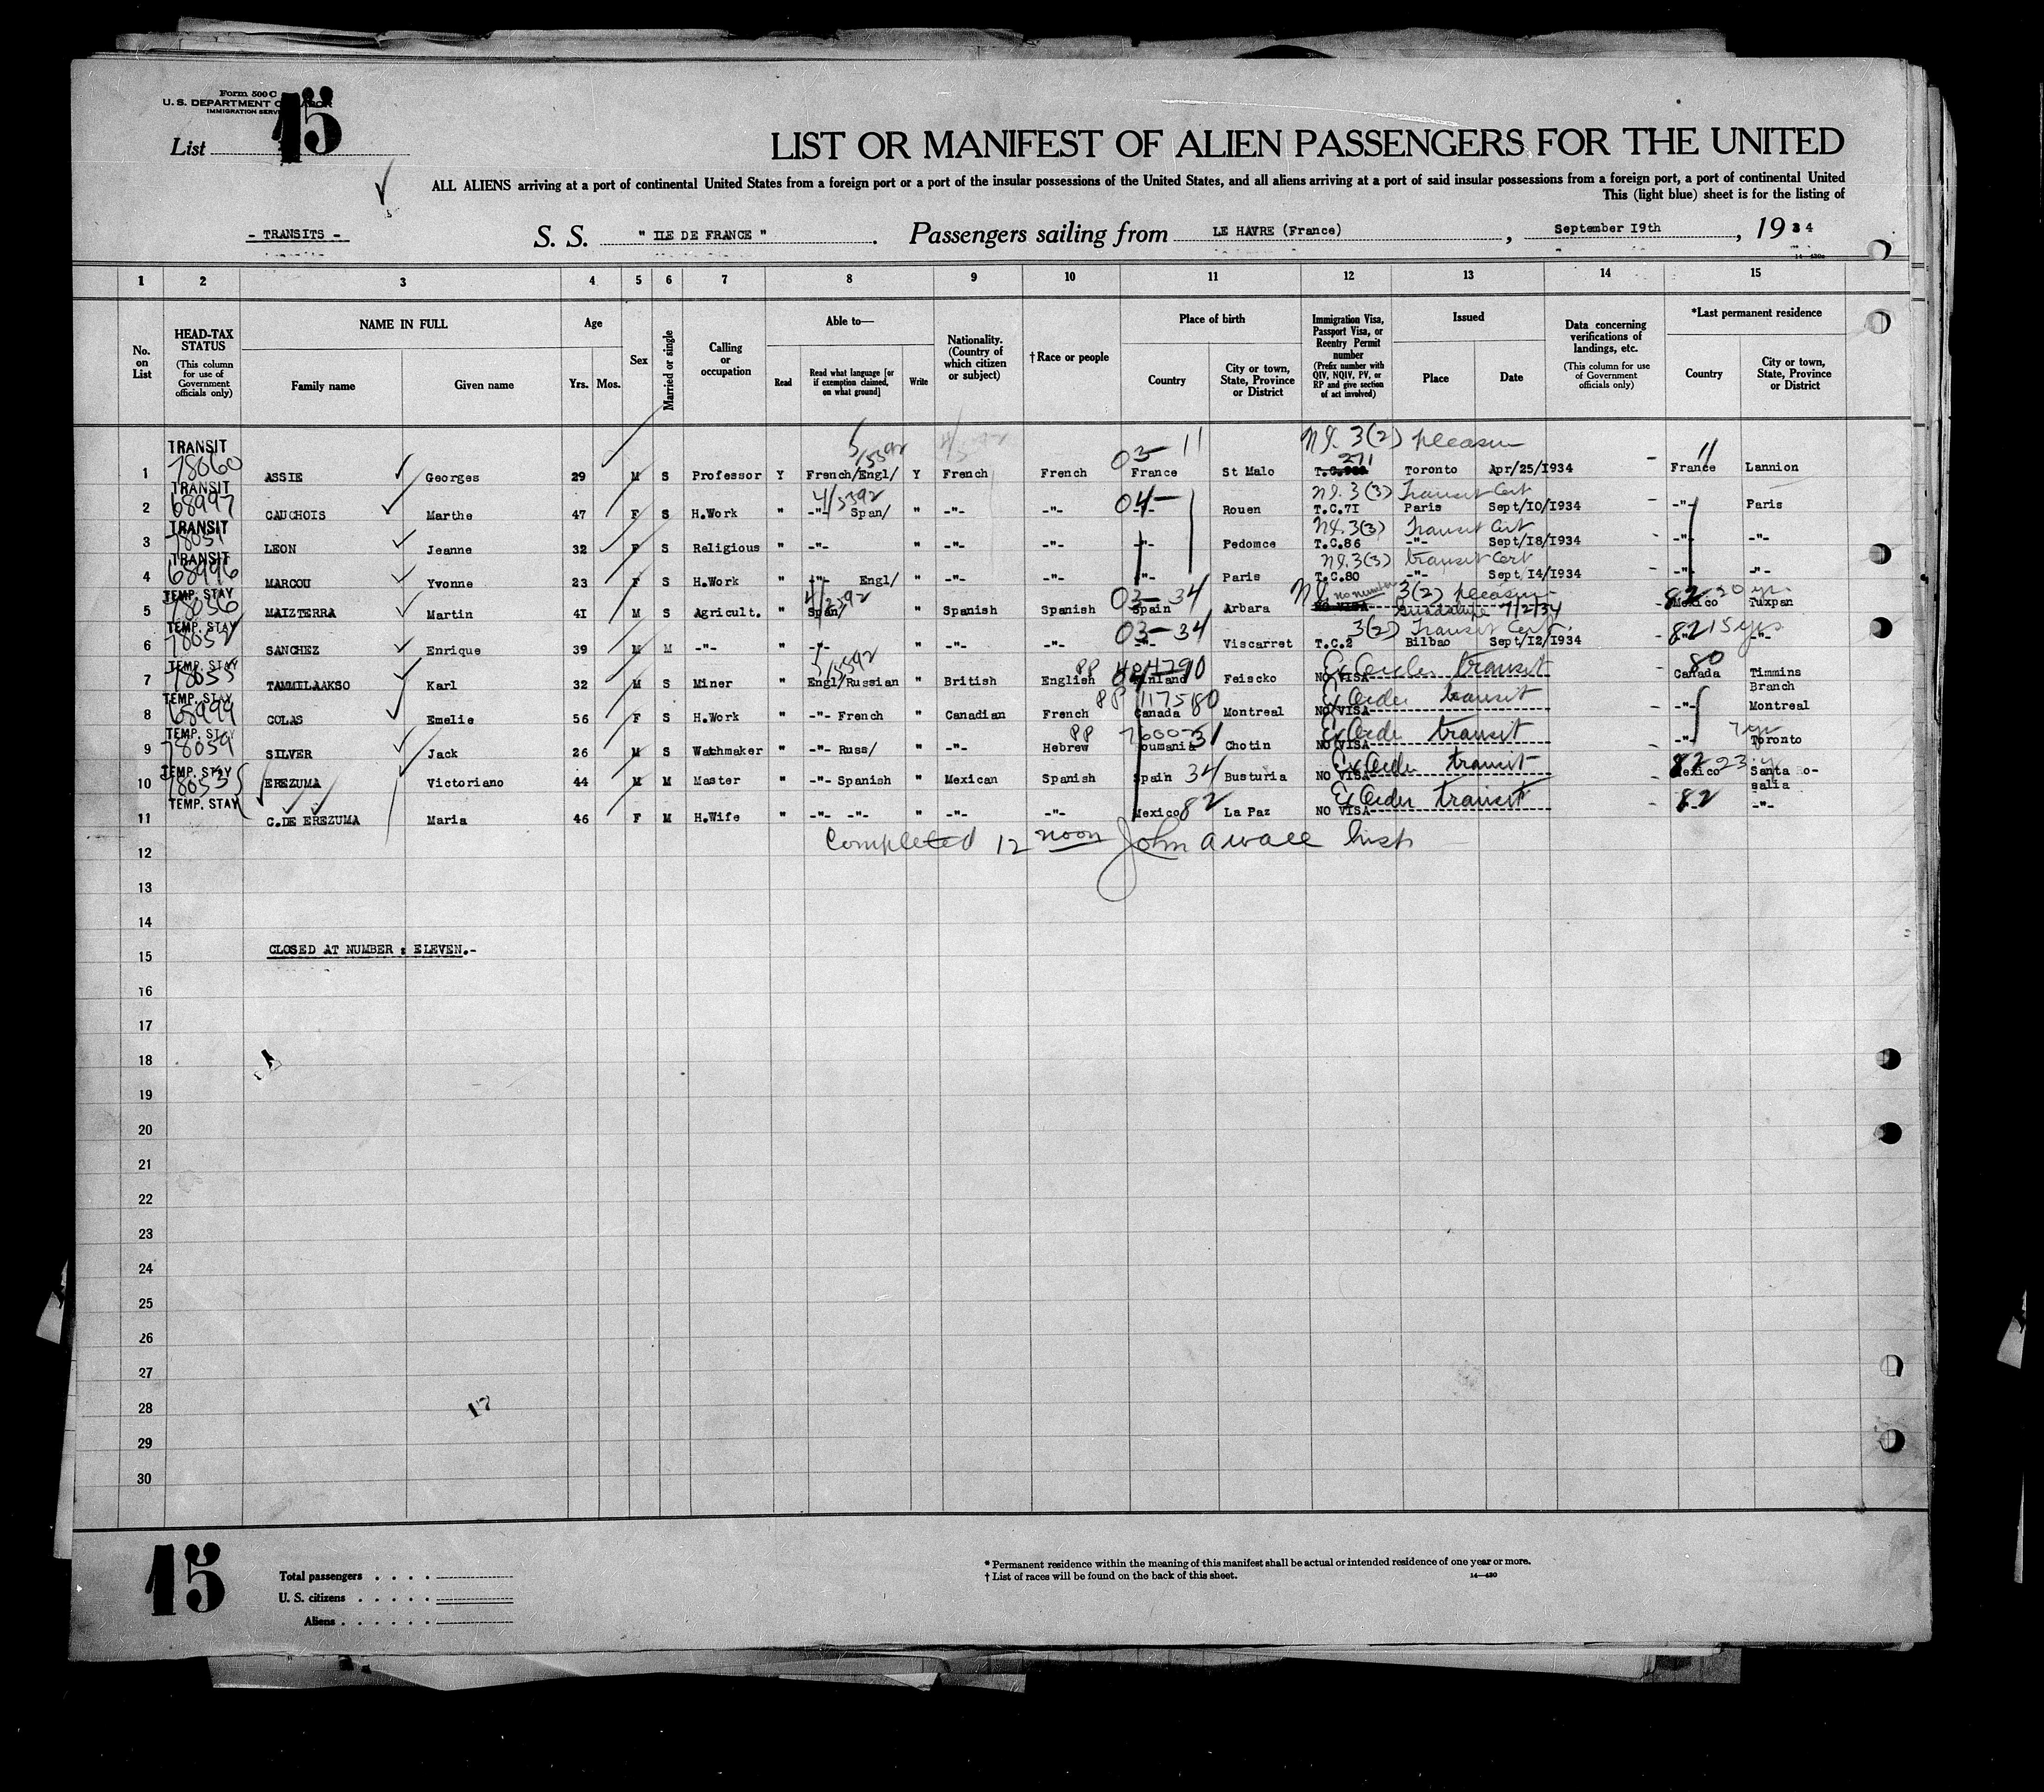 Form 500 C
U. S. DEPARTMENT OF LABOR
IMMIGRATION SERV
List 15
LIST OR MANIFEST OF ALIEN PASSENGERS FOR THE UNITED
ALL ALIENS arriving at a port of continental United States from a foreign port or a port of the insular possessions of the United States, and all aliens arriving at a port of said insular possessions from a foreign port, a port of continental United
This (light blue) sheet is for the listing of
- TRANSITS - S. S. " ILE DE FRANCE ". Passengers sailing from LE HAVRE (France), September 19th, 1934
1 2 3 4 5 6 7 8 9 10 11 12 13 14 15
No. on List
HEAD-TAX STATUS (This column for use of Government officials only)
NAME IN FULL Family name Given name
Age Yrs. Mos.
Sex
Married or single
Calling or occupation
Able to— Read Read what language [or if exemption claimed, on what ground] Write
Nationality. (Country of which citizen or subject)
† Race or people
Place of birth Country City or town, State, Province or District
Immigration Visa, Passport Visa, or Reentry Permit number (Prefix number with QIV, NQIV, PV, or RP and give section of act involved)
Issued Place Date
Data concerning verifications of landings, etc. (This column for use of Government officials only)
*Last permanent residence Country City or town, State, Province or District
TRANSIT 5/5392 03-11 3(2) pleasure 11
1 78060 ASSIE Georges 29 M S Professor Y French/Engl/ Y French French France St Malo 271 Toronto Apr/25/1934 France Lannion
TRANSIT 4/5392 3(3) Transit Cert
2 68997 CAUCHOIS Marthe 47 F S H.Work " -"- Span/ " -"- -"- 04- Rouen T.C.71 Paris Sept/10/1934 -"- Paris
TRANSIT 3(3) Transit Cert
3 78051 LEON Jeanne 32 F S Religious " -"- " -"- -"- -"- Pedomce T.C.86 -"- Sept/18/1934 -"- -"-
TRANSIT 3(3) transit Cert
4 68996 MARCOU Yvonne 23 F S H.Work " -"- Engl/ " -"- -"- -"- Paris T.C.80 -"- Sept/14/1934 -"- -"-
TEMP. STAY 03-34 no number 3(2) pleasure 82 20 yr
5 78056 MAIZTERRA Martin 41 M S Agricult. " Span/ " Spanish Spanish Spain Arbara NO VISA 7/2/34 Mexico Tuxpan
TEMP. STAY 03-34 3(2) Transit Cert. 82 15 yrs
6 78052 SANCHEZ Enrique 39 M M -"- " -"- " -"- -"- -"- Viscarret T.C.2 Bilbao Sept/12/1934 -"- -"-
TEMP. STAY 5/5392 PP Ex Order transit 80
7 78055 TAMMILAAKSO Karl 32 M S Miner " Engl/Russian " British English Finland Feiscko NO VISA Canada Timmins Branch
TEMP. STAY PP 1175180 Ex Order transit
8 68999 COLAS Emelie 56 F S H.Work " -"- French " Canadian French Canada Montreal NO VISA -"- Montreal
TEMP. STAY PP Ex Order transit 7 yr
9 78059 SILVER Jack 26 M S Watchmaker " -"- Russ/ " -"- Hebrew Roumania Chotin NO VISA -"- Toronto
TEMP. STAY Ex Order transit 82 23 y
10 78053 EREZUMA Victoriano 44 M M Master " -"- Spanish " Mexican Spanish Spain 34 Busturia NO VISA Mexico Santa Ro-salia
TEMP. STAY Ex Order transit
11 C.DE EREZUMA Maria 46 F M H.Wife " -"- -"- " -"- -"- Mexico 82 La Paz NO VISA 82 -"-
12 Completed 12 noon John A Wall Insp
13
14
15 CLOSED AT NUMBER : ELEVEN.-
16
17
18
19
20
21
22
23
24
25
26
27
28 17
29
30
15
Total passengers . . . .
U. S. citizens . . . . .
Aliens . . . . . .
* Permanent residence within the meaning of this manifest shall be actual or intended residence of one year or more.
† List of races will be found on the back of this sheet. 14—430